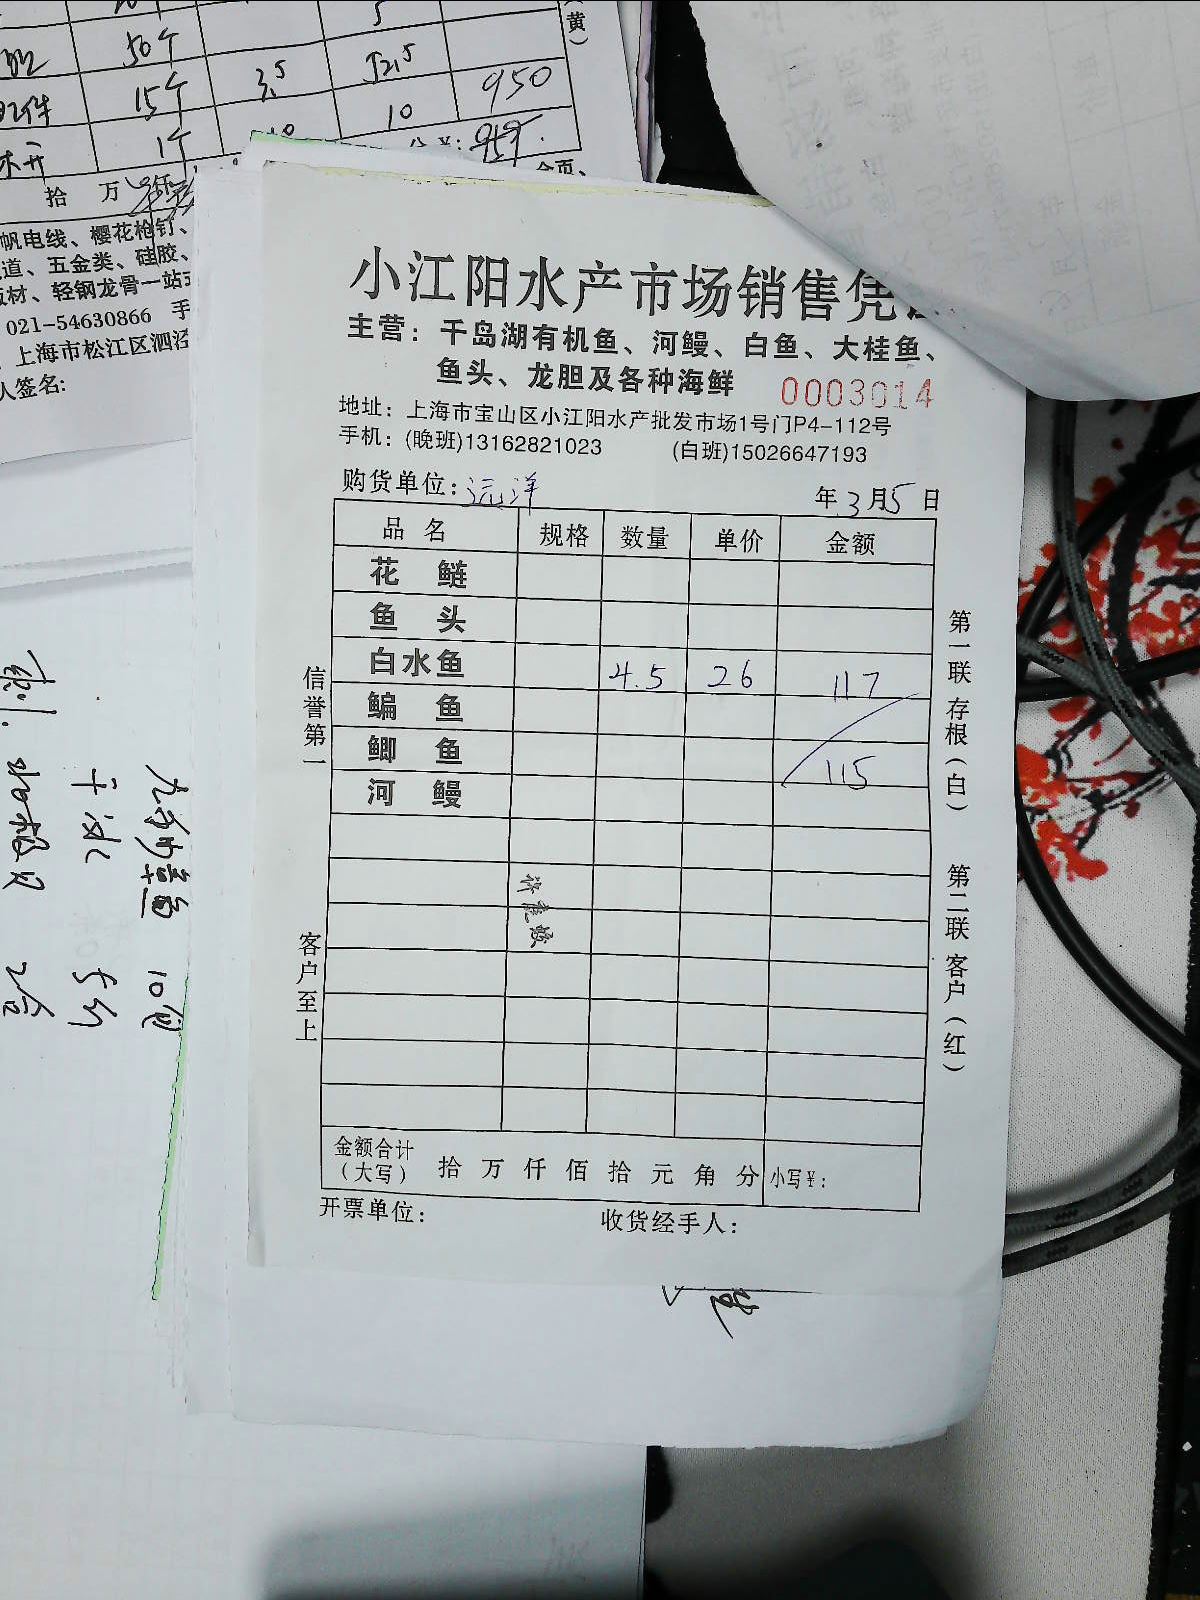 5
(黄)
50个
配件 15个 3.5 52.5 950
1个 10 10
拾 万
帆电线、樱花枪钉、
道、五金类、硅胶、
板材、轻钢龙骨一站式
021-54630866 手
上海市松江区泗泾
人签名:
小江阳水产市场销售凭
主营：千岛湖有机鱼、河鳗、白鱼、大桂鱼、
鱼头、龙胆及各种海鲜 0003014
地址：上海市宝山区小江阳水产批发市场1号门P4-112号
手机：(晚班)13162821023 (白班)15026647193
购货单位：远洋 年3月5日
品名 规格 数量 单价 金额
花鲢
鱼头
白水鱼 4.5 26 117
鳊鱼
鲫鱼 115
河鳗
信誉第一
客户至上
第一联 存根(白)
第二联 客户(红)
金额合计
(大写) 拾 万 仟 佰 拾 元 角 分 小写¥：
开票单位： 收货经手人：